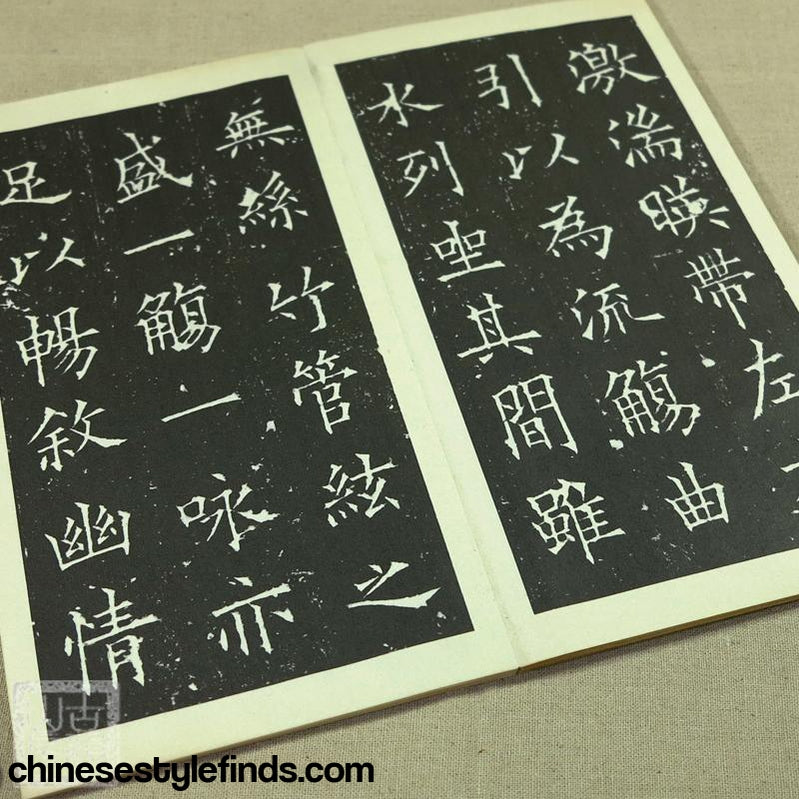 激湍暎帶左
引以為流觴曲
水列坐其間雖
無絲竹管絃之
盛一觴一咏亦
足以暢敘幽情
chinesestylefinds.com